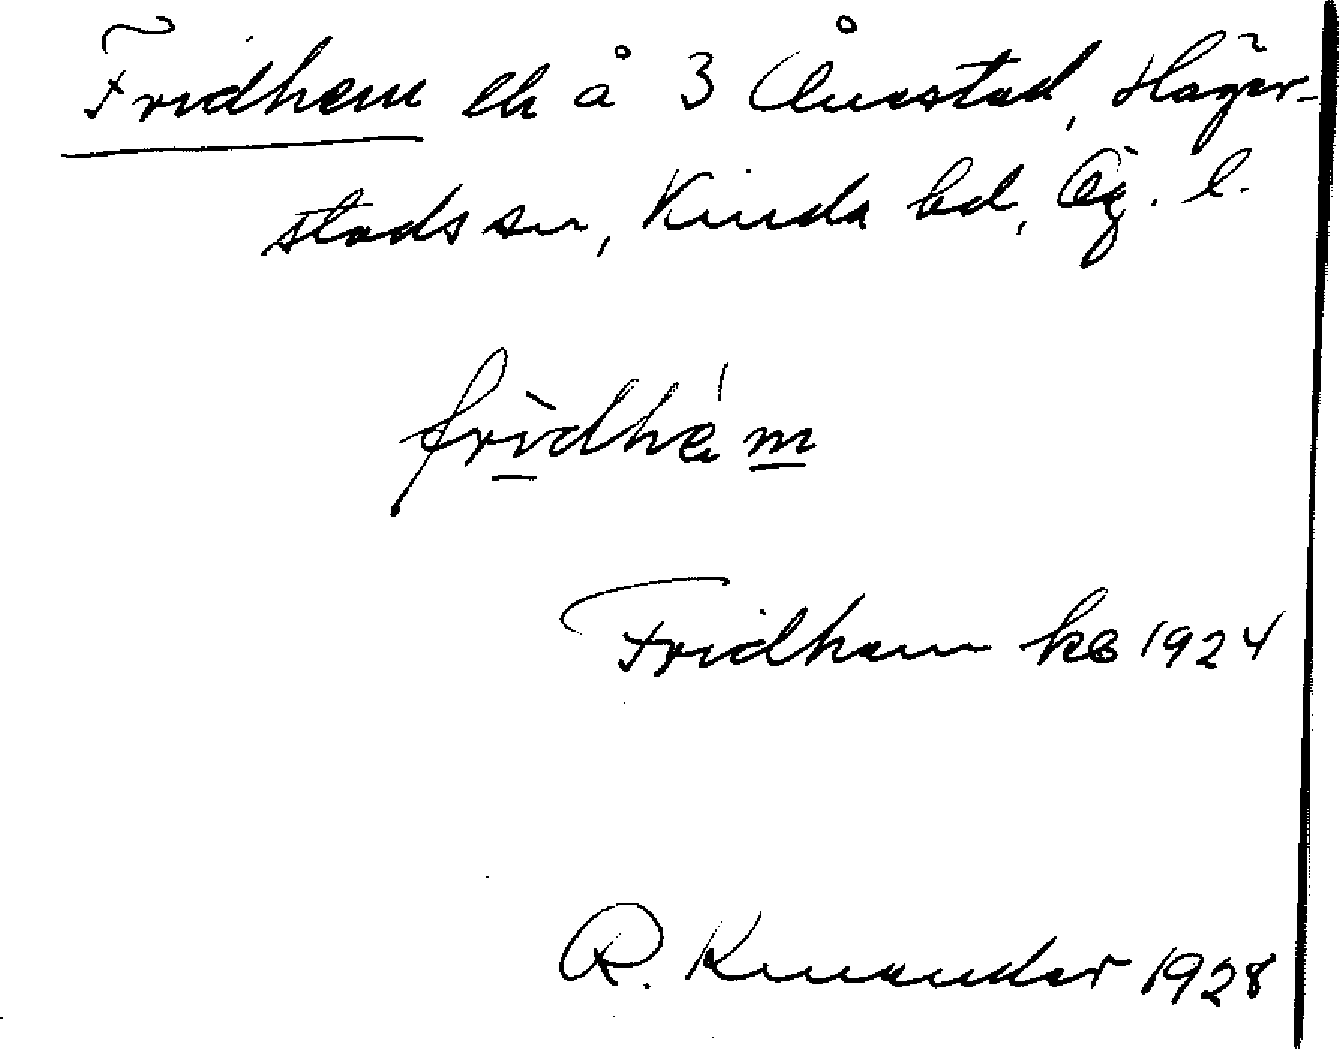 Fridhem lh å 3 Ånestad, Häger-
stads sn, Kinda hd, Ög. l.
fridhém
Fridhem kb 1924
R. Knuander 1928